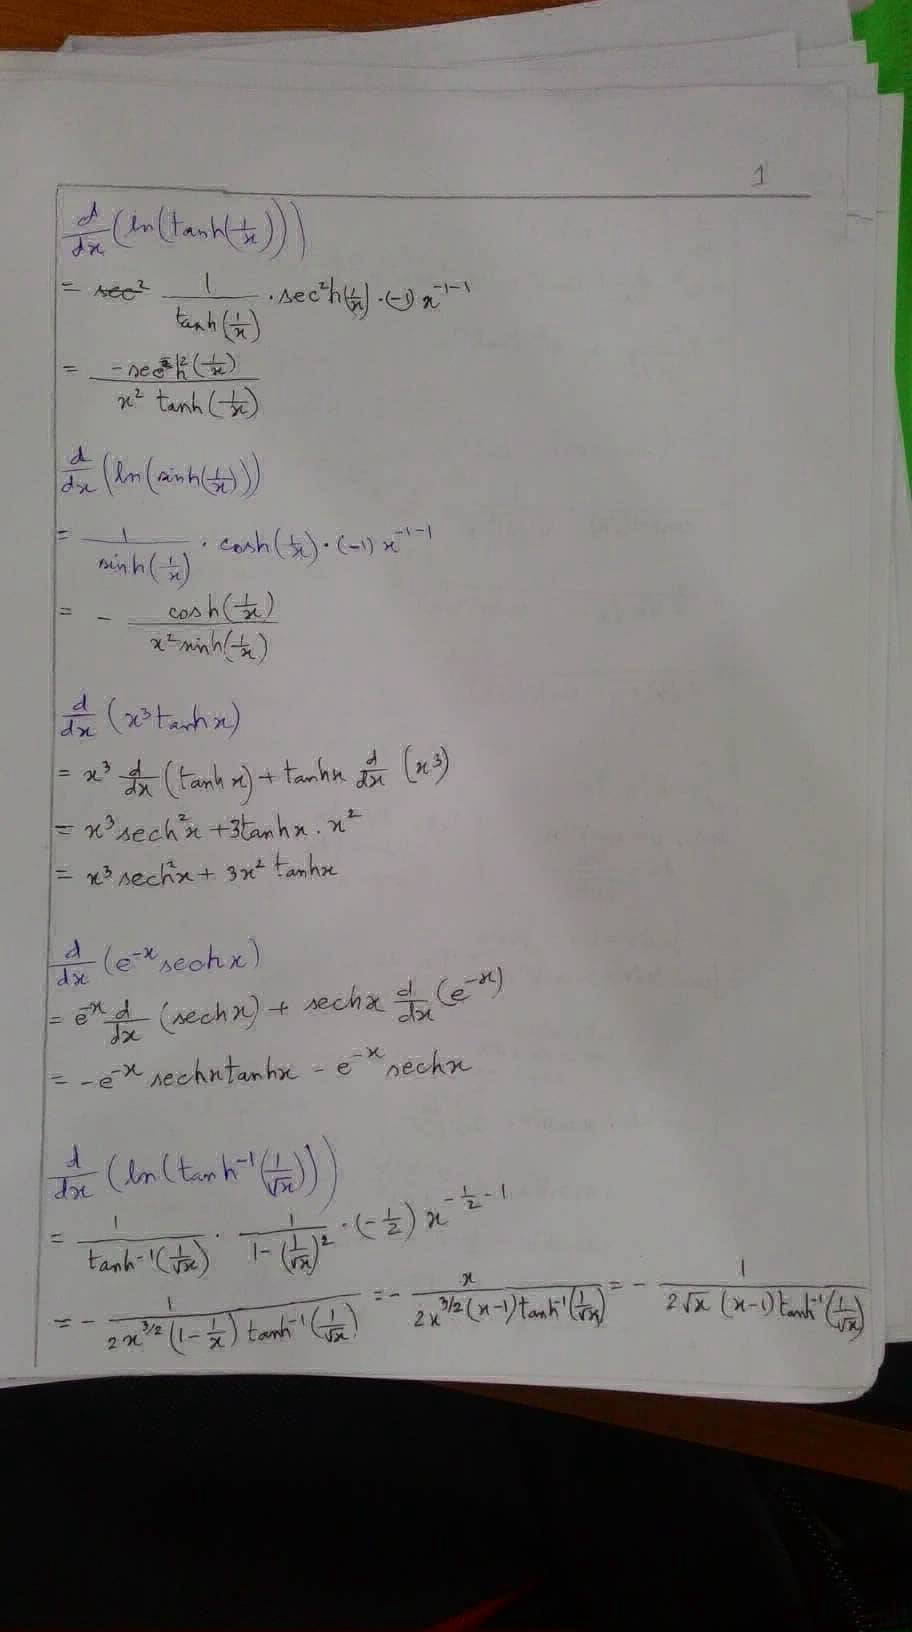 1
d/dx (ln(tanh(1/x)))
= sec² 1/tanh(1/x) · sec²h(1/x) · (-1) x^(-1-1)
= -sech²(1/x) / x² tanh(1/x)
d/dx (ln(sinh(1/x)))
= 1/sinh(1/x) · cosh(1/x) · (-1) x^(-1-1)
= - cosh(1/x) / x² sinh(1/x)
d/dx (x³ tanhx)
= x³ d/dx (tanhx) + tanhx d/dx (x³)
= x³ sech²x + 3tanhx . x²
= x³ sech²x + 3x² tanhx
d/dx (e^(-x) sechx)
= e^(-x) d/dx (sechx) + sechx d/dx (e^(-x))
= -e^(-x) sechxtanhx - e^(-x) sechx
d/dx (ln(tanh⁻¹(1/√x)))
= 1/tanh⁻¹(1/√x) · 1/(1-(1/√x)²) · (-1/2) x^(-1/2-1)
= - 1/(2x^(3/2) (1-1/x) tanh⁻¹(1/√x)) = - x/(2x^(3/2) (x-1) tanh⁻¹(1/√x)) = - 1/(2√x (x-1) tanh⁻¹(1/√x))